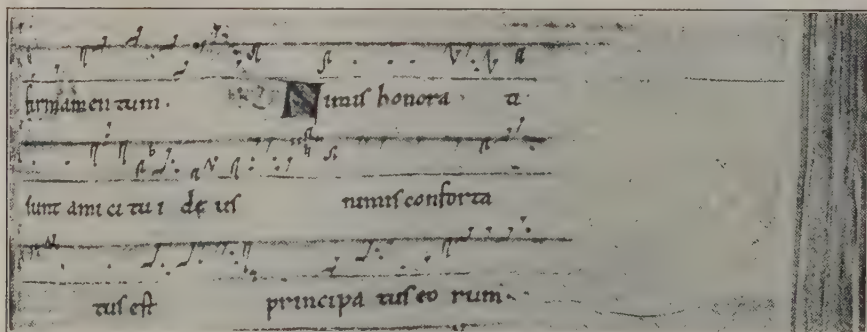 firmamen tum. Nimis honora ti
sunt ami ci tu i de us nimis conforta
tus est principa tus eo rum.